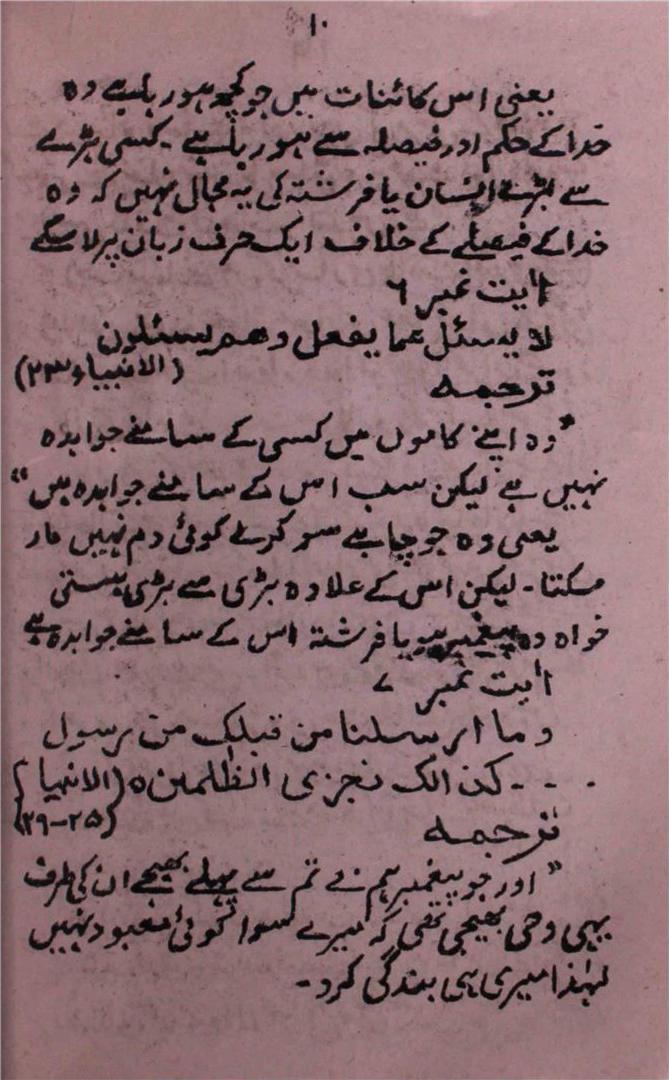 ۱۰
یعنی اس کائنات میں جو کچھ ہو رہا ہے وہ
خدا کے حکم اور فیصلہ سے ہو رہا ہے ۔ کسی بڑے
سے بڑے انسان یا فرشتہ کی یہ مجال نہیں کہ وہ
خدا کے فیصلے کے خلاف ایک حرف زبان پر لا سکے
آیت نمبر ۶
لا یہ سئل عما یفعل وھم یسئلون
(الانبیاء ۲۳)
ترجمہ
"وہ اپنے کاموں میں کسی کے سامنے جوابدہ
نہیں ہے لیکن سب اس کے سامنے جوابدہ ہیں"
یعنی وہ جو چاہے سو کرے کوئی دم نہیں مار
سکتا ۔ لیکن اس کے علاوہ بڑی سے بڑی ہستی
خواہ وہ پیغمبر ہو یا فرشتہ اس کے سامنے جوابدہ ہے
آیت نمبر ۷
وما ارسلنا من قبلک من رسول
۔ ۔ ۔ کذالک نجزی الظلمین ۝ (الانبیا
۲۵-۲۹)
ترجمہ
"اور جو پیغمبر ہم نے تم سے پہلے بھیجے ان کی طرف
یہی وحی بھیجی تھی کہ میرے سوا کوئی معبود نہیں
لہٰذا میری ہی بندگی کرو ۔